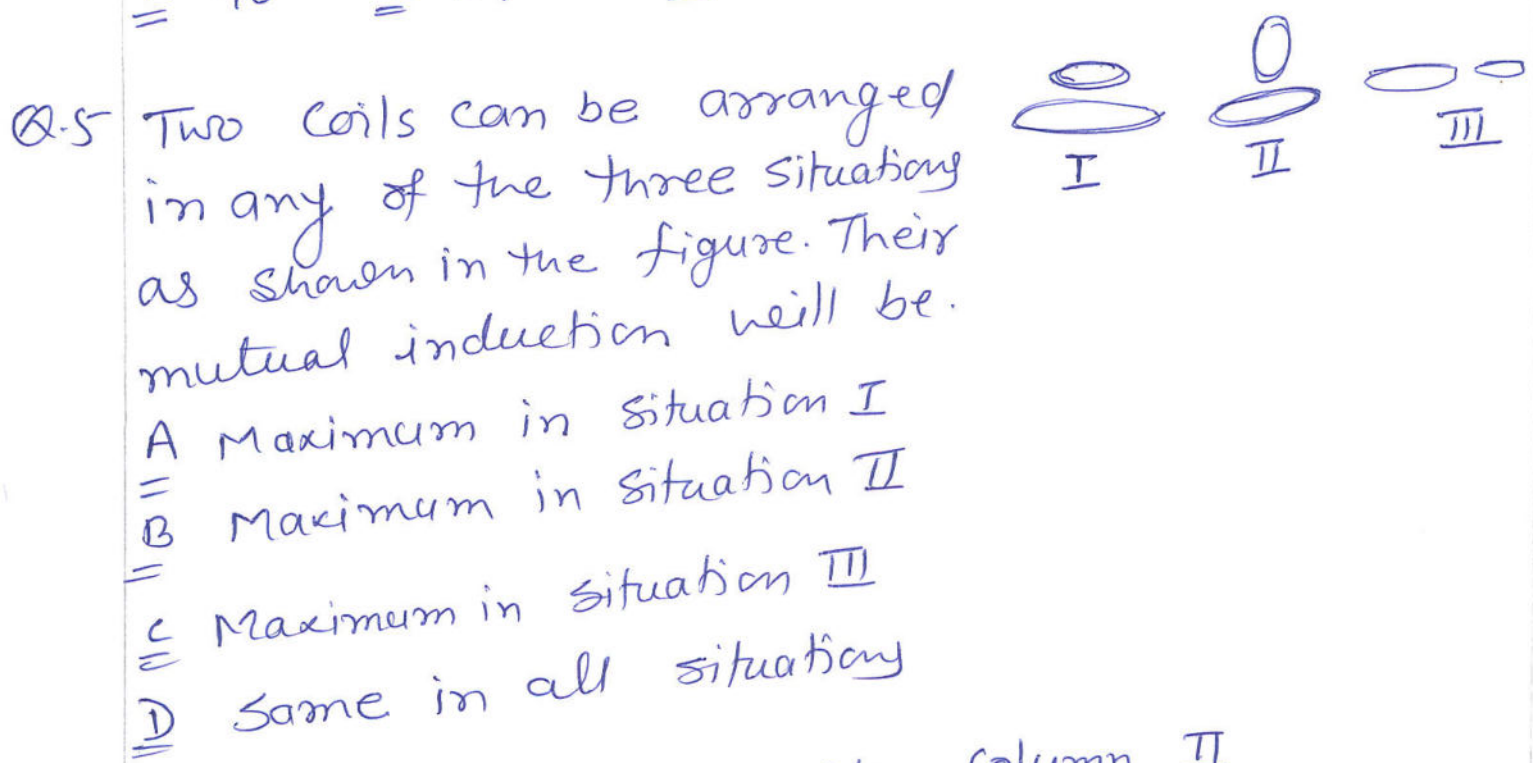 Q.5 Two coils can be arranged
in any of the three situations
as shown in the figure. Their
mutual induction will be.
I
II
III
A Maximum in situation I
B Maximum in situation II
C Maximum in situation III
D Same in all situations
column II